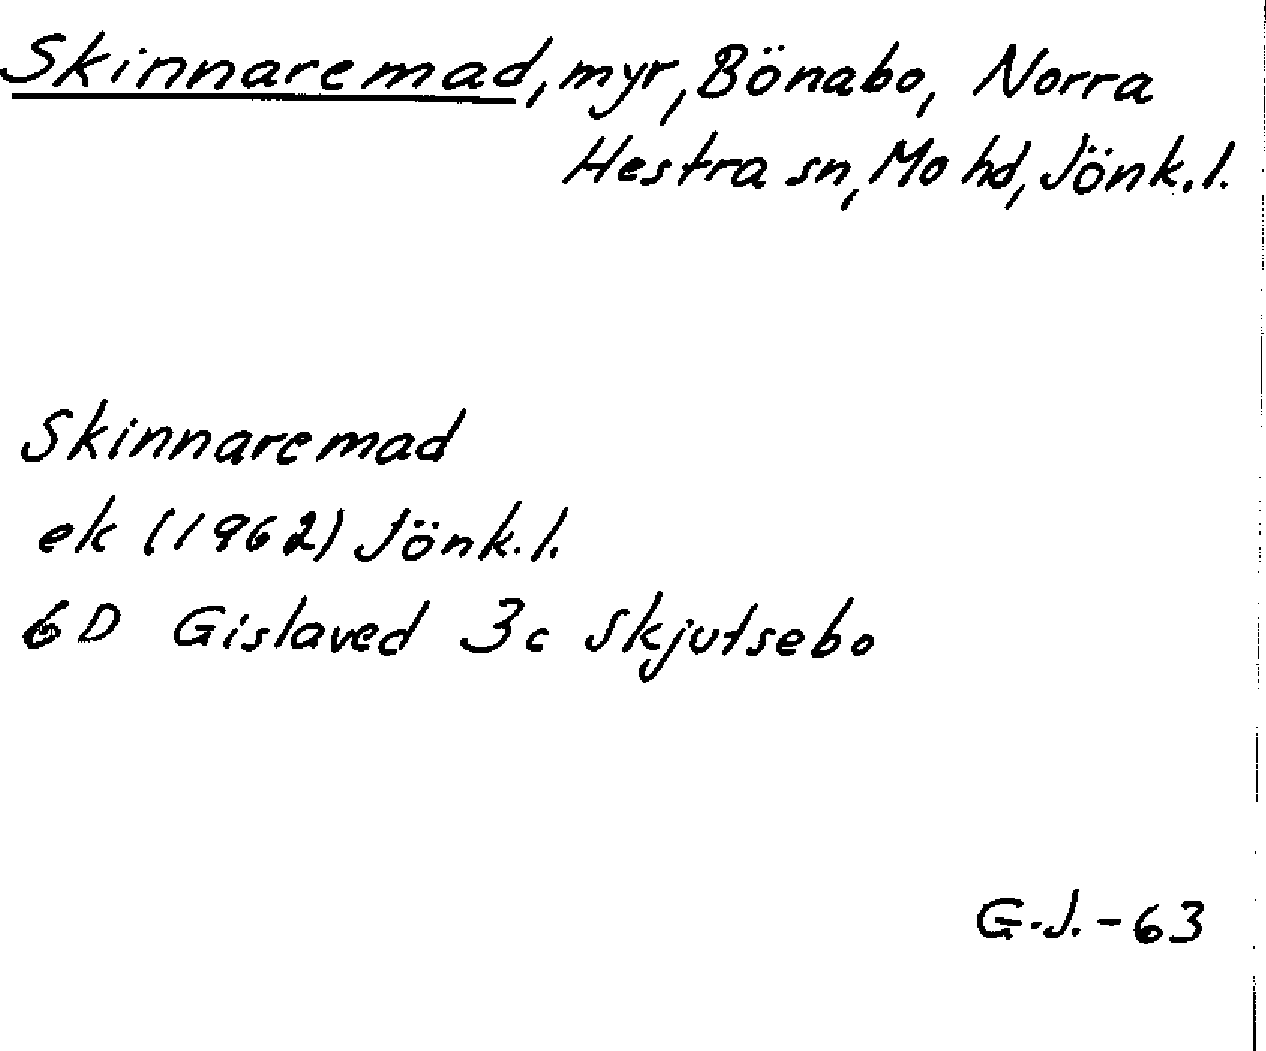 Skinnaremad, myr, Bönabo, Norra
Hestra sn, Mo hd, Jönk.l.
Skinnaremad
ek (1962) Jönk.l.
6D Gislaved 3c Skjutsebo
G.J.-63